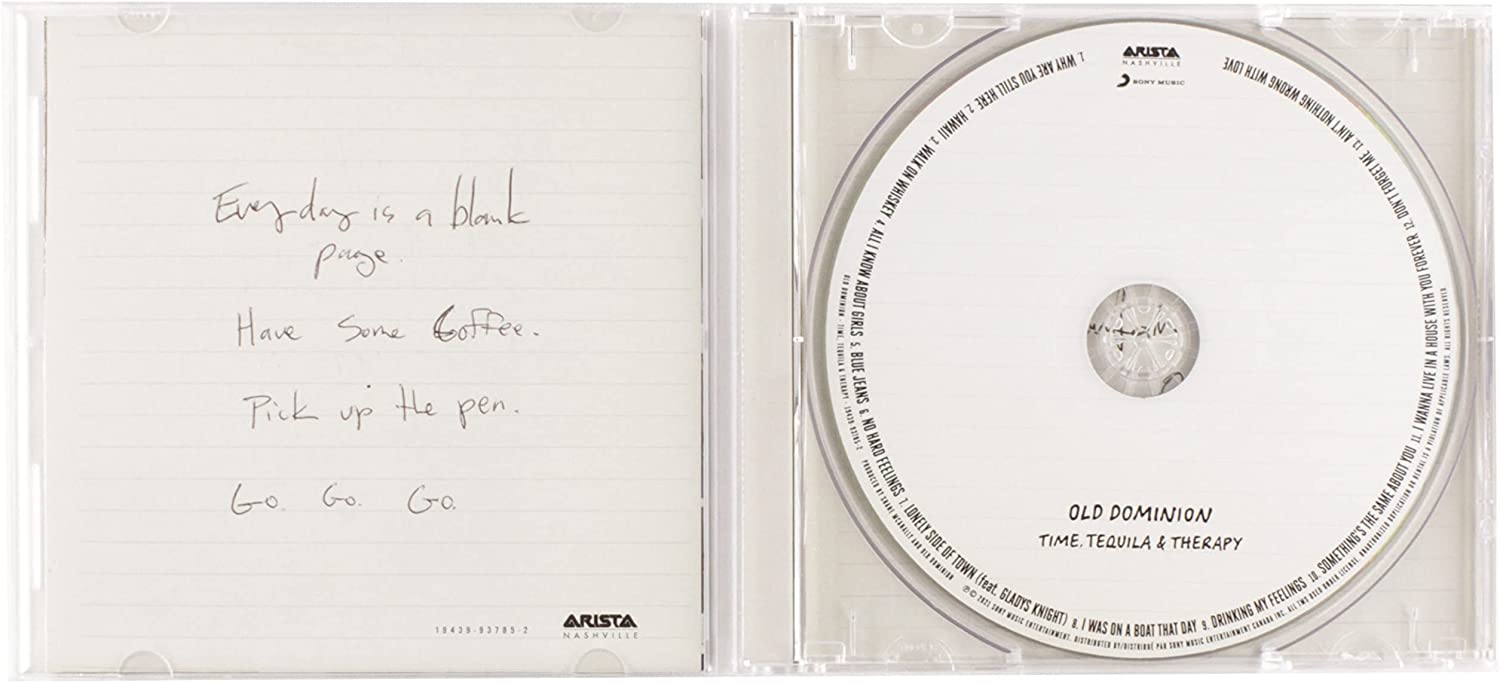 Every day is a blank
page.
Have Some Coffee.
Pick up the pen.
Go. Go. Go.
19439-93785-2
ARISTA
NASHVILLE
ARISTA
NASHVILLE
SONY MUSIC
1. WHY ARE YOU STILL HERE 2. HAWAII 3. WALK ON WHISKEY 4. ALL I KNOW ABOUT GIRLS 5. BLUE JEANS 6. NO HARD FEELINGS 7. LONELY SIDE OF TOWN (feat. GLADYS KNIGHT) 8. I WAS ON A BOAT THAT DAY 9. DRINKING MY FEELINGS 10. SOMETHING'S THE SAME ABOUT YOU 11. I WANNA LIVE IN A HOUSE WITH YOU FOREVER 12. DON'T FORGET ME 13. AIN'T NOTHING WRONG WITH LOVE
OLD DOMINION - TIME, TEQUILA & THERAPY - 19439-93785-2 PRODUCED BY SHANE MCANALLY AND OLD DOMINION ℗© 2021 SONY MUSIC ENTERTAINMENT. DISTRIBUTED BY/DISTRIBUÉ PAR SONY MUSIC ENTERTAINMENT CANADA INC. ALL TMS USED UNDER LICENSE. UNAUTHORIZED DUPLICATION OR RENTAL IS A VIOLATION OF APPLICABLE LAWS. ALL RIGHTS RESERVED.
OLD DOMINION
TIME, TEQUILA & THERAPY